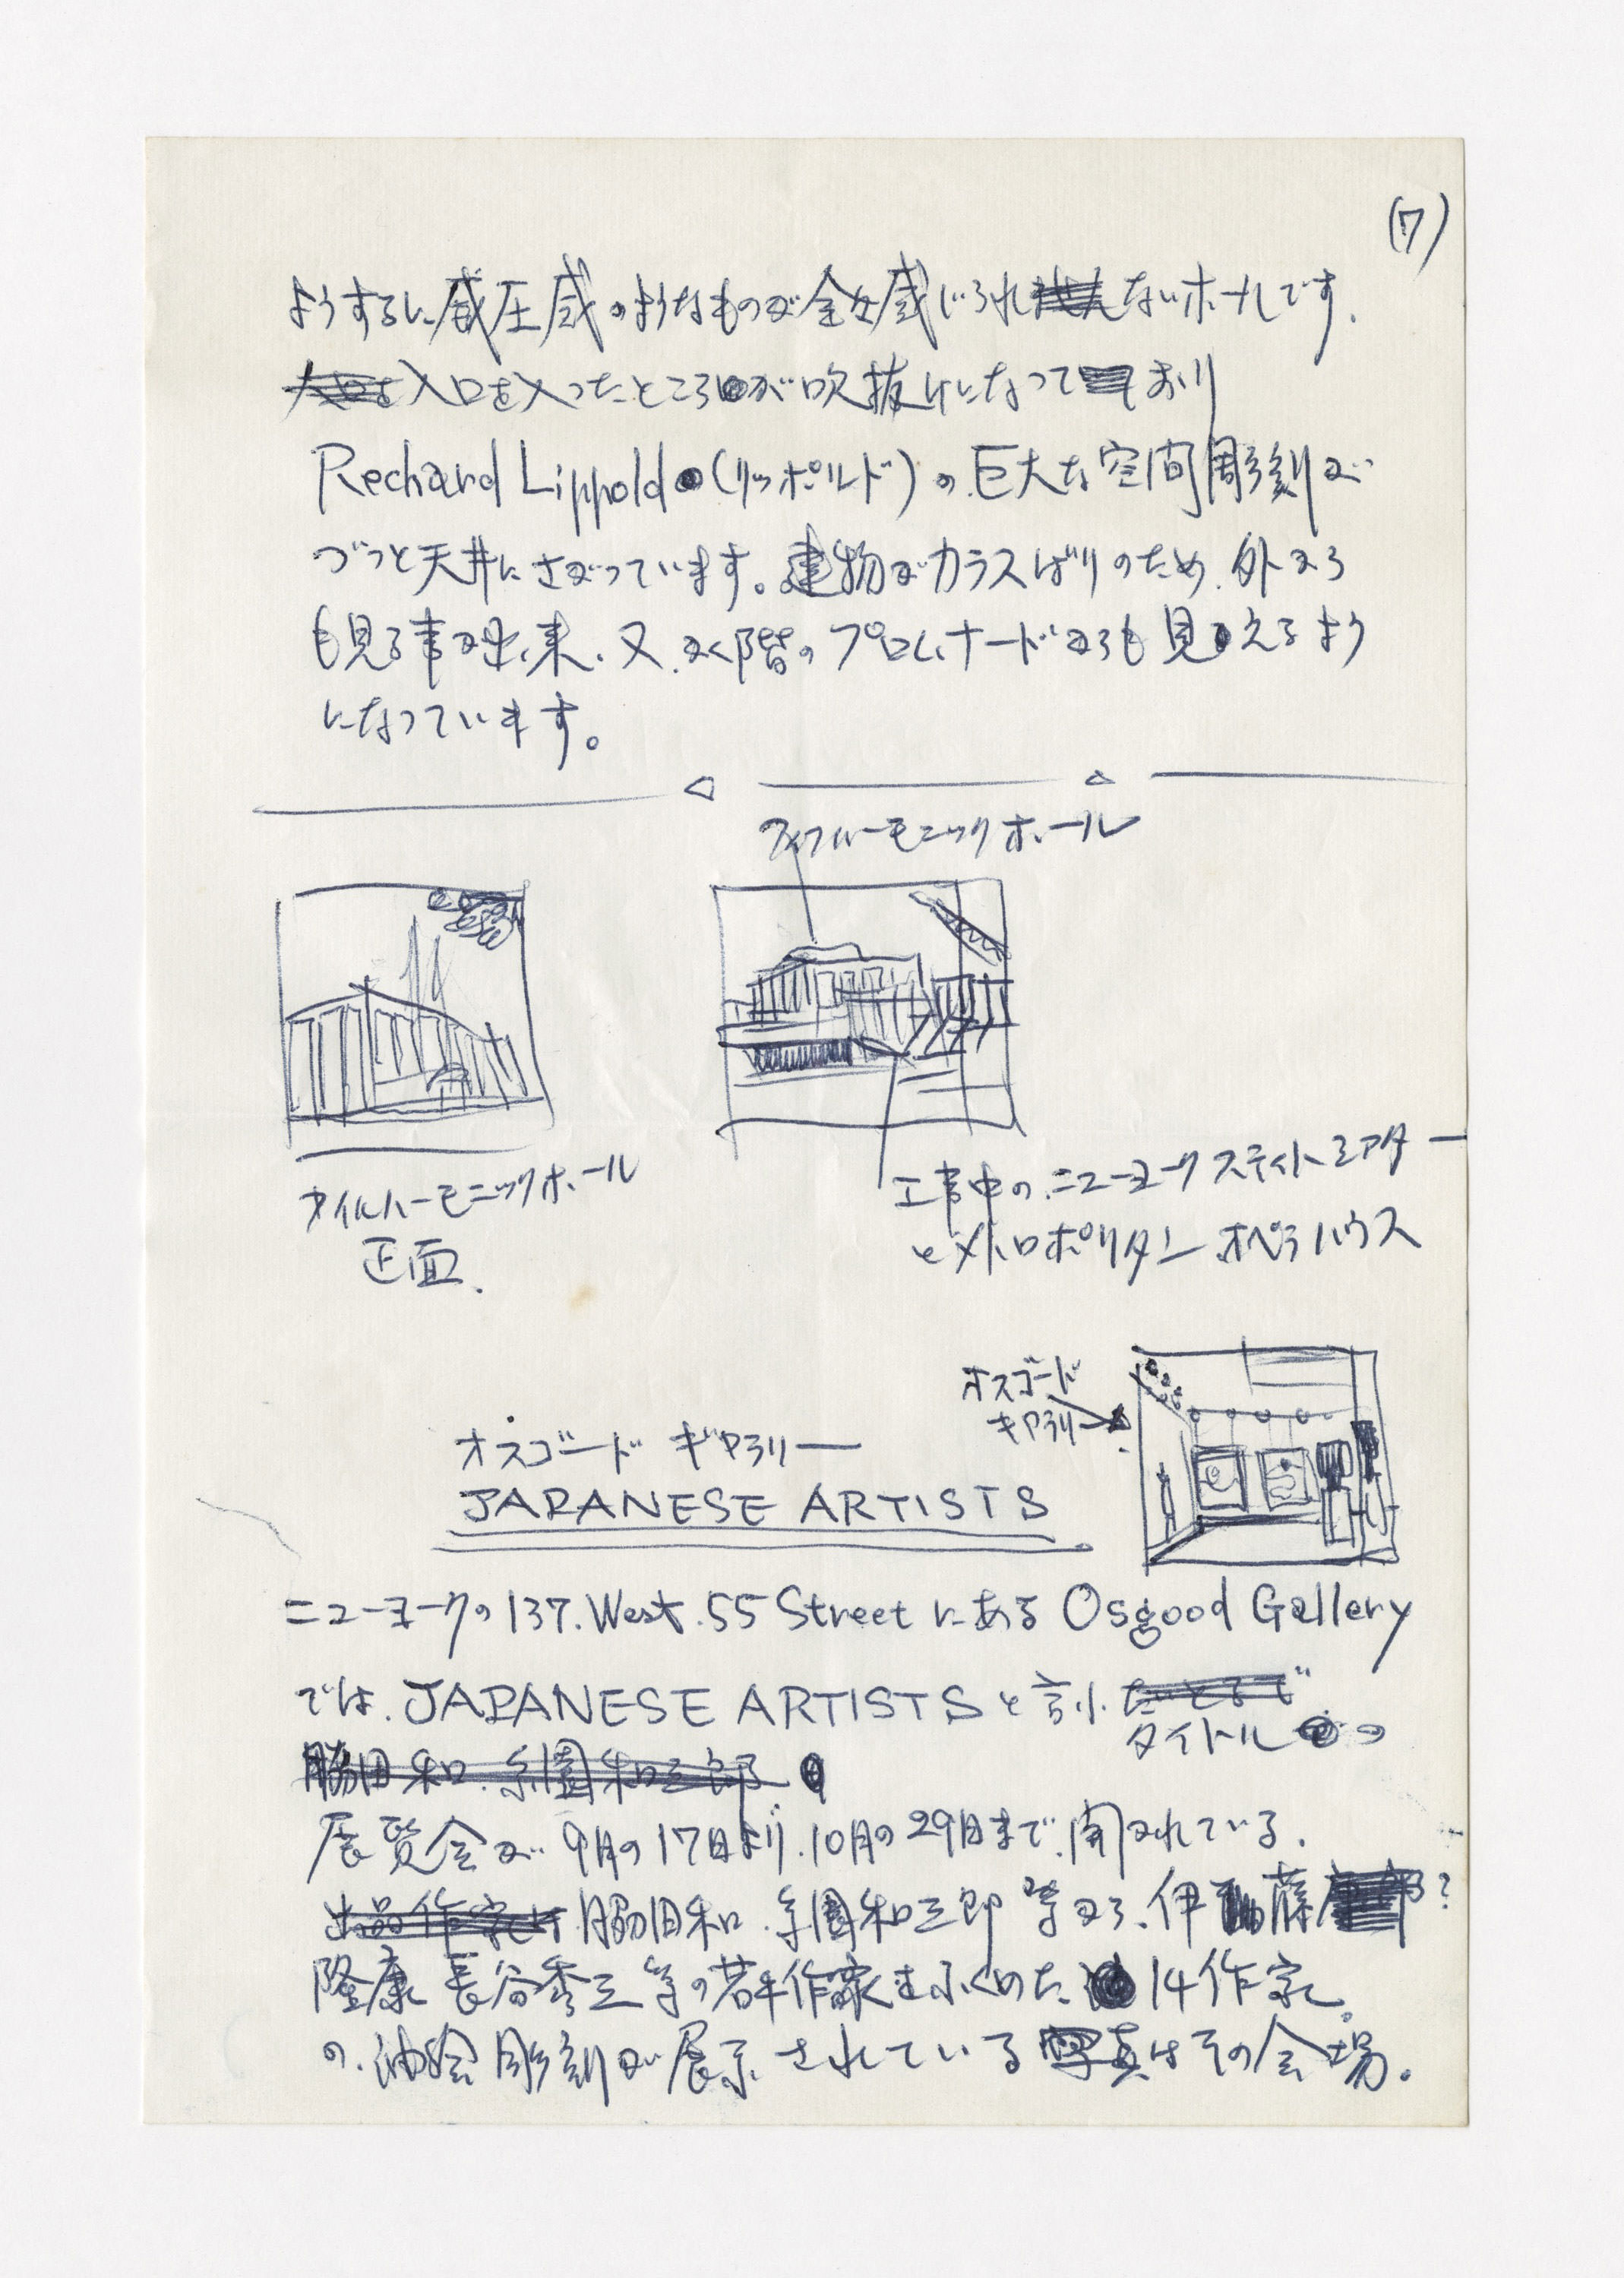 (7)
ようするに威圧感のようなものが全々感じられないホールです.
入口を入ったところが吹抜けになっており
Rechard Lippold (リッポルド)の巨大な空間彫刻が
づっと天井にさがっています。建物がガラスばりのため.外から
も見る事が出来.又.各階のプロムナードからも見えるよう
になっています。
フィルハーモニックホール
フイルハーモニックホール
正面.
工事中のニューヨークステイトシアター
とメトロポリタンオペラハウス
オスゴード
ギャラリー
オスゴード ギャラリー
JAPANESE ARTISTS
ニューヨークの137.West.55 Streetにある Osgood Gallery
では.JAPANESE ARTISTSと言う
タイトルの
脇田和.糸園和三郎
展覧会が9月の17日より.10月の29日まで.開かれている.
出品作家は脇田和.糸園和三郎等から、伊藤?
隆康 長谷秀三等の若手作家をふくめた14作家.
の.油絵彫刻が展示されている写真はその会場。